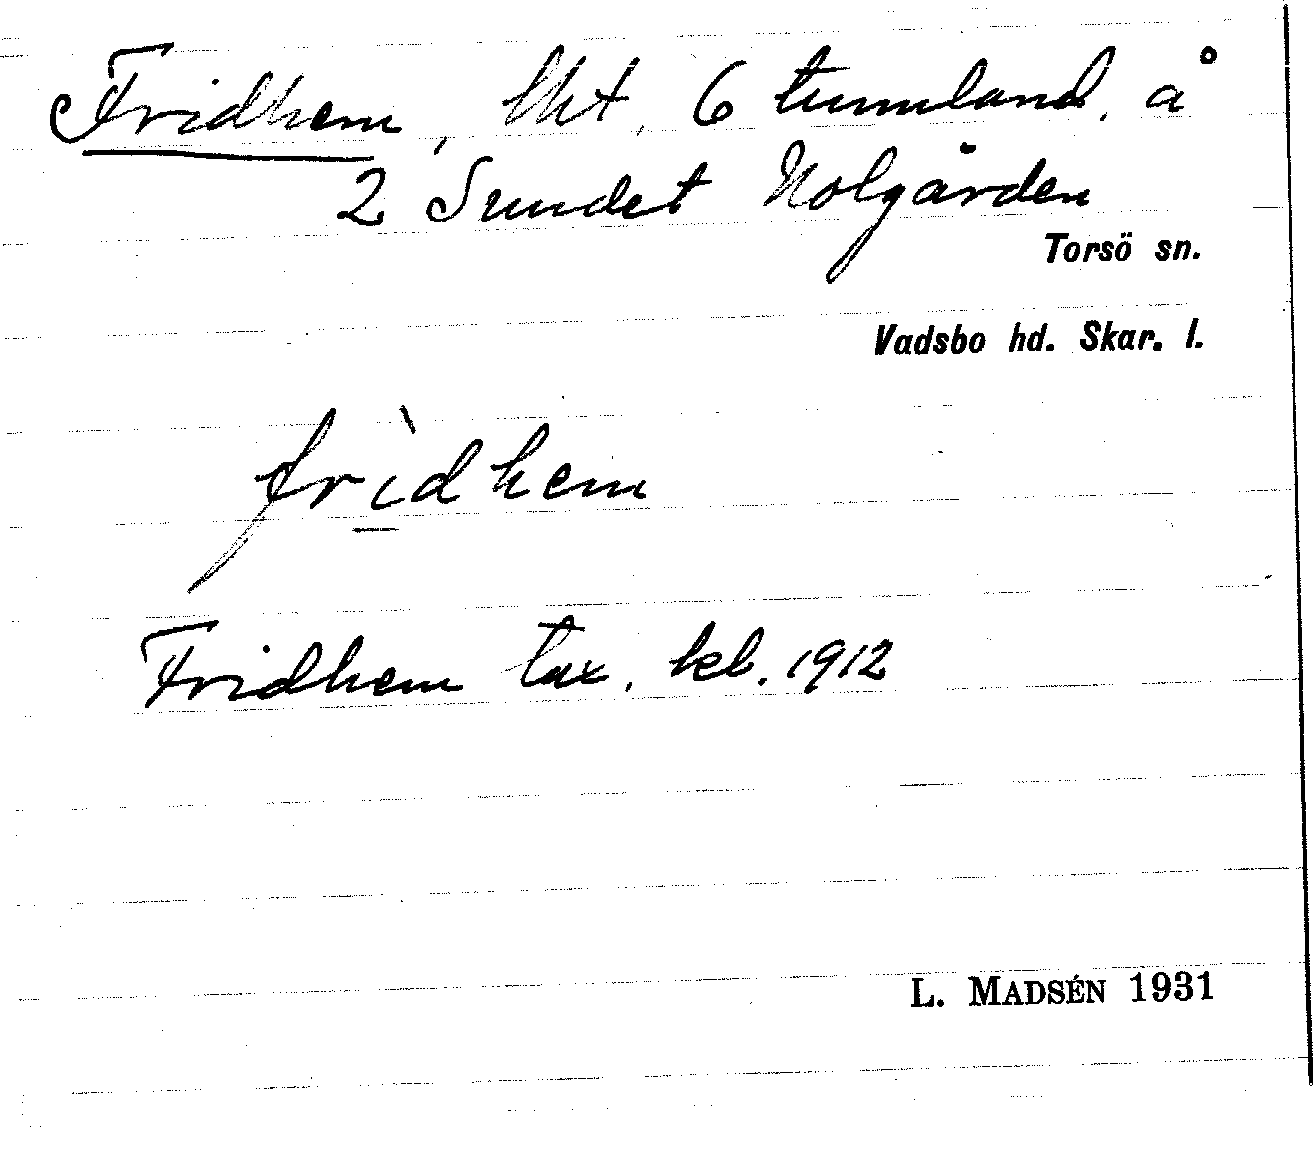 Fridhem, lht, 6 tunnland, å
2 Sundet Nolgården
Torsö sn.
Vadsbo hd. Skar. l.
frìdhem
Fridhem tax. kl. 1912
L. MADSÉN 1931